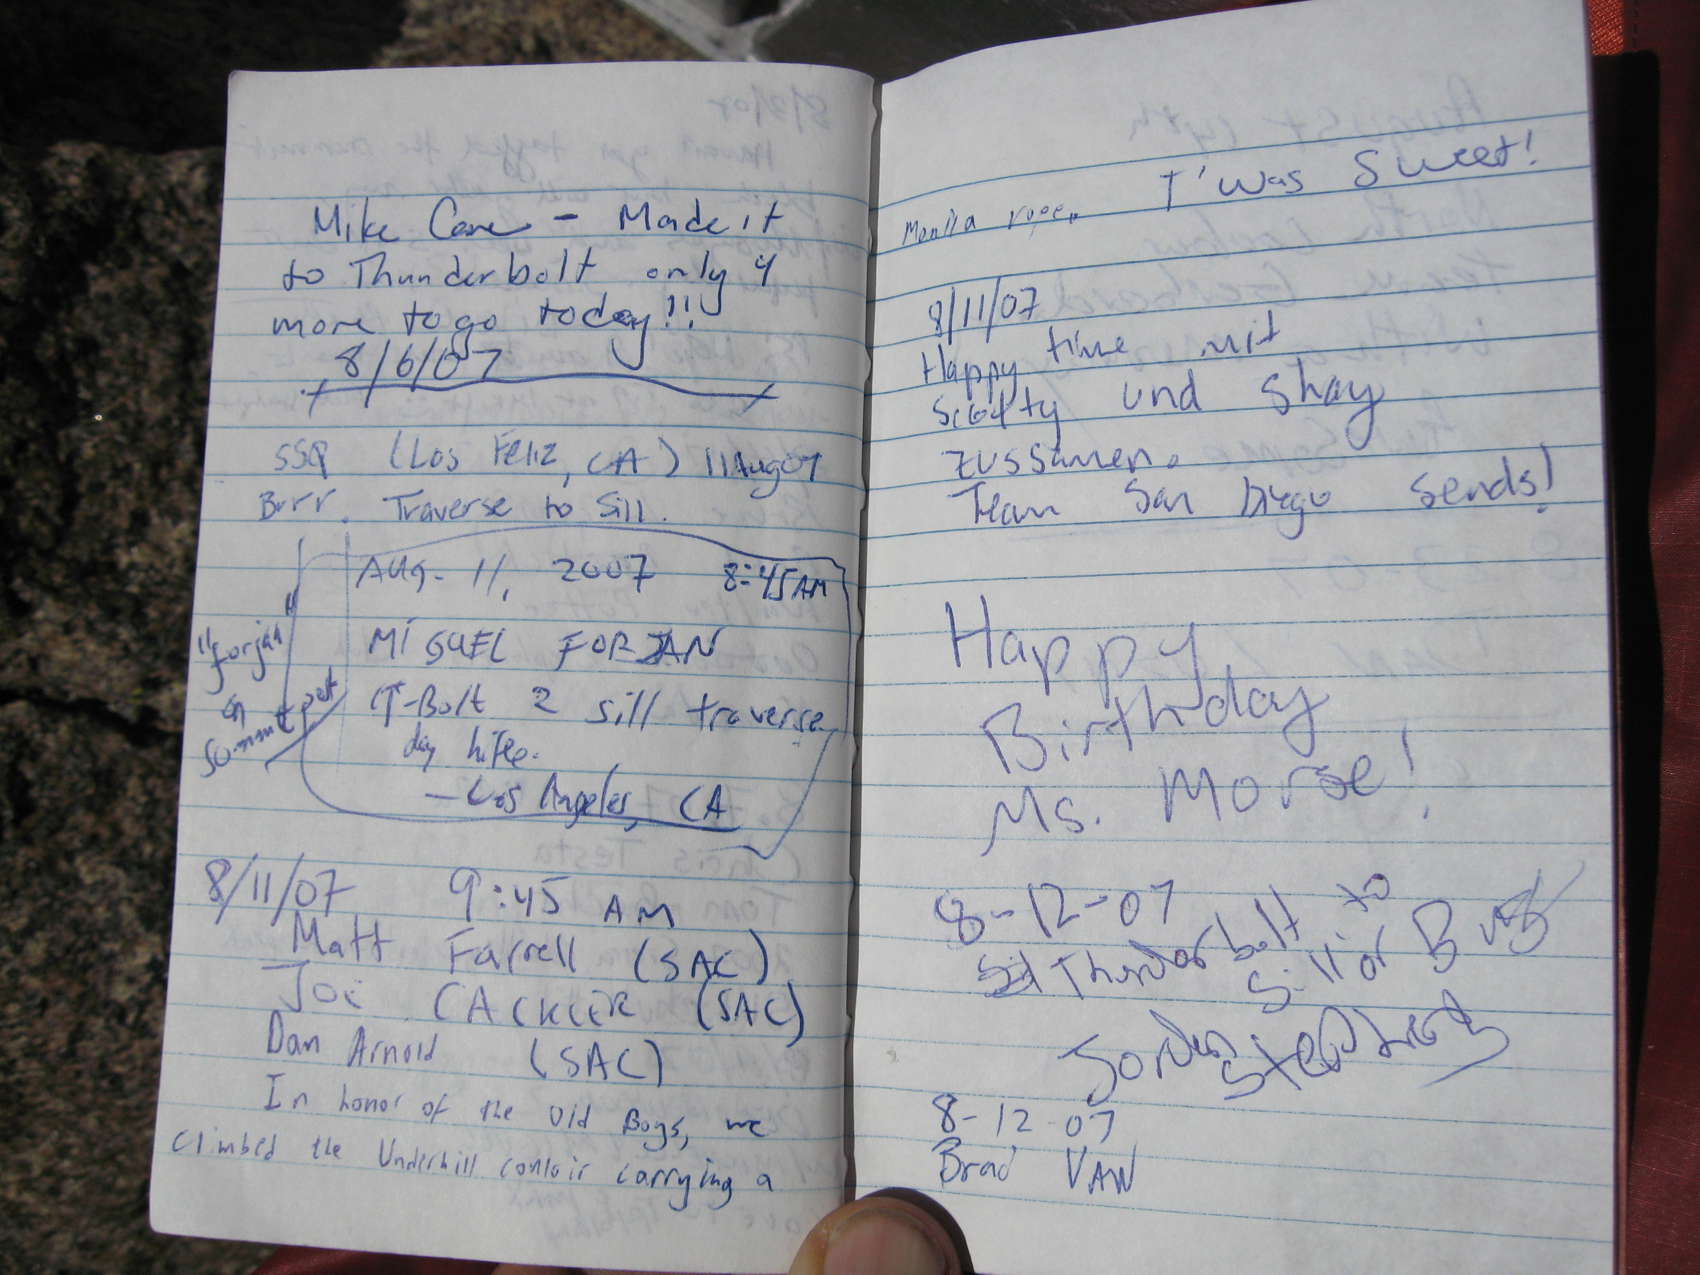 Mike Cane - Made it
to Thunderbolt only 4
more to go today!!
8/6/07
SSQ (Los Feliz, CA) 11Aug07
Brrr. Traverse to Sill.
Aug. 11, 2007 8:45AM
MIGUEL FORJAN
T-Bolt 2 sill traverse
day hike.
- Los Angeles, CA
"forjan"
on
summitpost
8/11/07 9:45 AM
Matt Farrell (SAC)
Joe CACKLER (SAC)
Dan Arnold (SAC)
In honor of the Old Boys, we
climbed the Underhill couloir carrying a
Manila rope. T'was Sweet!
8/11/07
Happy time mit
Scotty und Shay
zussamen.
Team San Diego sends!
Happy
Birthday
Ms. Morse!
8-12-07
Thunderbolt to
Sill or Bust
Jorden
8-12-07
Brad VAW